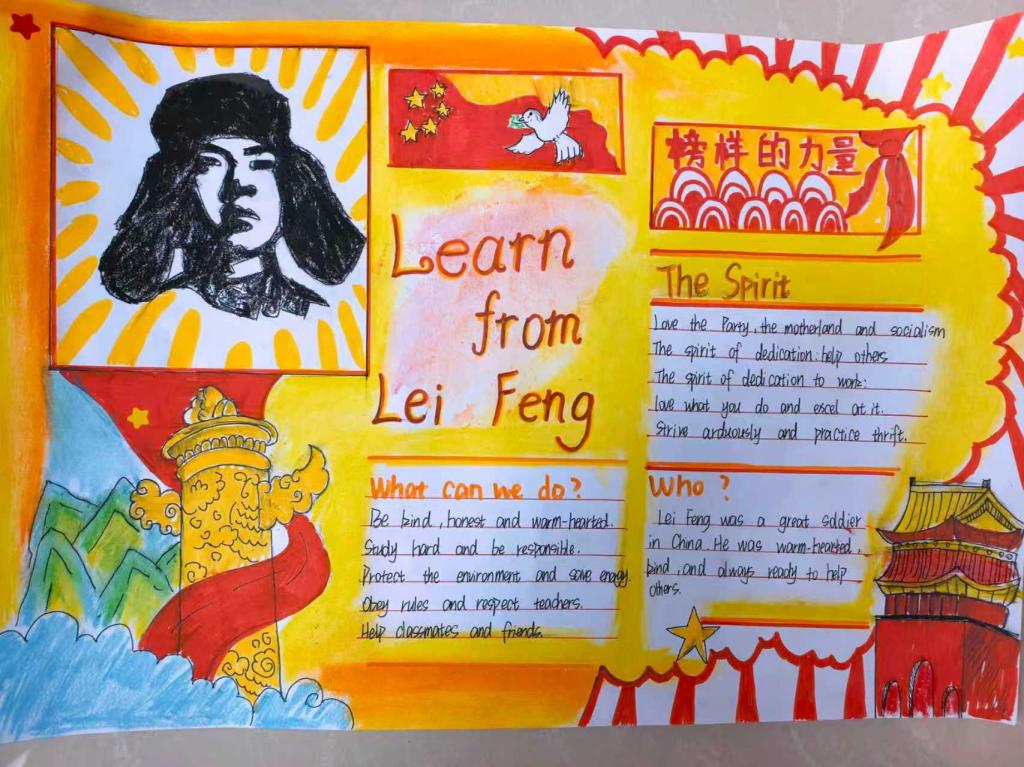 榜样的力量
Learn
from
Lei Feng
The Spirit
Love the Party, the motherland and socialism
The spirit of dedication: help others
The spirit of dedication to work:
love what you do and excel at it.
Strive arduously and practice thrift.
What can we do?
Be kind, honest and warm-hearted.
Study hard and be responsible.
Protect the environment and save energy.
Obey rules and respect teachers.
Help classmates and friends.
Who?
Lei Feng was a great soldier
in China. He was warm-hearted,
kind, and always ready to help
others.